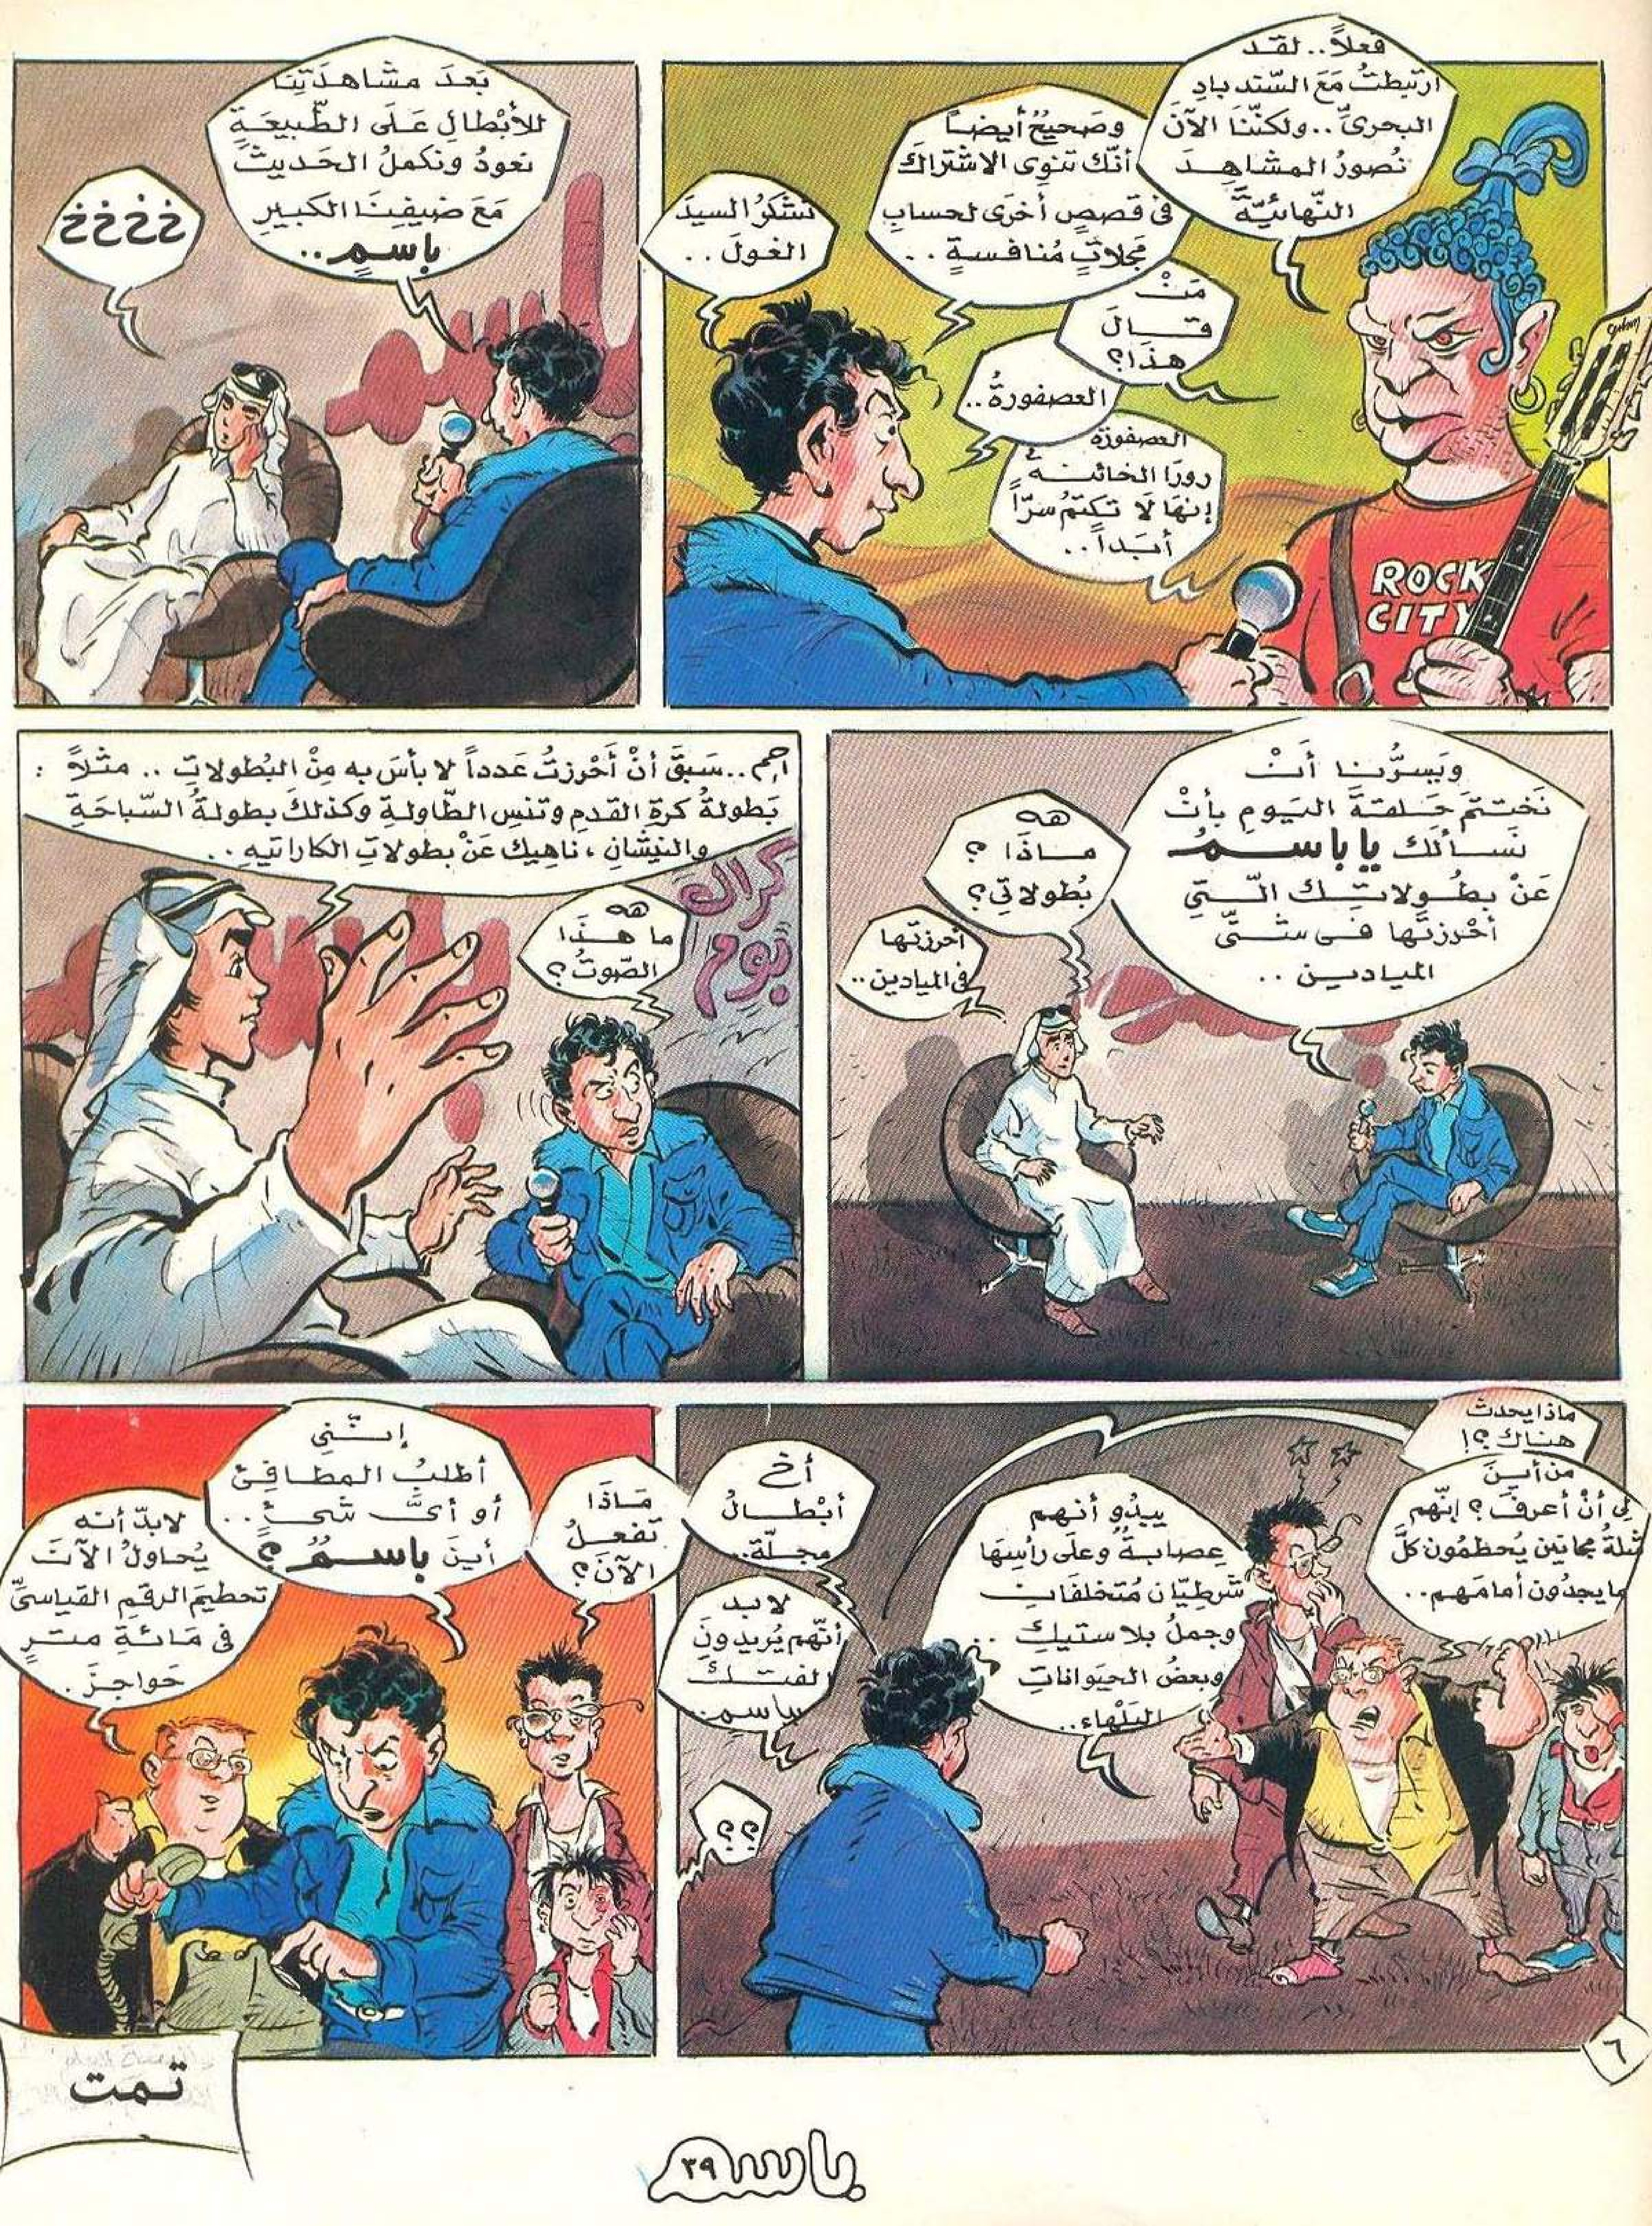 فعلاً.. لقد
ارتبطتُ مَعَ السّندبادِ
البحريّ.. ولكنّنَا الآنَ
نُصورُ المشاهِدَ
النّهائيّةَ
وصَحيحٌ أيضاً
أنّكَ تنوِى الاشتراكَ
فى قصصٍ أخرَى لحسابِ
مَجلاتٍ مُنافسةٍ..
مَنْ
قالَ
هذَا؟
العصفورةُ..
العصفورَة
زوزَا الخائنة
إنهَا لَا تكتمُ سرّاً
أبَداً..
نَشكرُ السيدَ
الغولَ..
ROCK
CITY
بَعدَ مشاهدَتِنَا
للأبْطالِ عَلَى الطّبيعَةِ
نعودُ ونكملُ الحَديثَ
مَعَ ضيفِنَا الكبيرِ
باسمٍ..
خخخخ
ويَسرُّنا أنْ
نَختتمَ حَلقةَ اليَومِ بأنْ
نَسألكَ ياباسمُ
عَنْ بطُولاتِكَ الّتِي
أحْرزتَها فى شتّى
الميادين..
هه
ماذَا؟
بُطولاتِي؟
أحرزتَها
فى الميادين..
احم.. سَبقَ أنْ أَحْرزتُ عَدداً لا بأسَ به مِنْ البُطولاتِ.. مثلاً:
بَطولةُ كرةِ القدمِ وتنسِ الطّاولةِ وكذلكَ بطولةُ السّباحَةِ
والنيشانِ، ناهِيكَ عَنْ بطولاتِ الكاراتيهِ..
كراك
بوم
هه
ما هذَا
الصّوتُ؟
ماذا يحدث
هناكَ؟!
من أينَ
لِي أنْ أعرفَ؟ إنّهم
ثلةُ مجانين يُحطمُون كلَّ
ما يجدُون أمامَهم..
يبدُو أنهم
عصابةٌ وعلَى رأسِهَا
شرطيّان مُتخلفَان
وجملٌ بلاستيك..
وبعضُ الحيَواناتِ
البَلْهاء..
أخ
أبْطالُ
مجلّة..
لابد
أنّهم يُريدونَ
الفتكَ
بباسمٍ..
؟؟
مَاذَا
تفعلُ
الآنَ؟
إنّنِي
أطلبُ المطافِئَ
أو أىّ شَىءٍ..
أينَ باسمُ؟
لابدّ أنه
يُحاولُ الآنَ
تحطيمَ الرقمِ القياسىِّ
فى مَائةِ مترٍ
حَواجزَ.
٦
تمت
باسم
٣٩